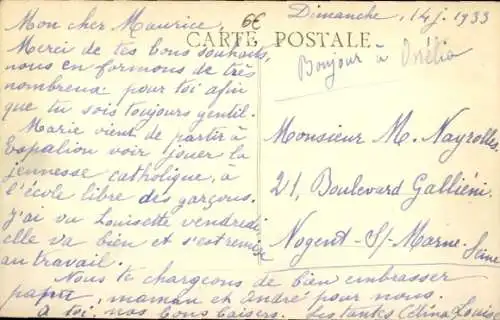 Dimanche, 14 j. 1933
6€
CARTE POSTALE
Mon cher Maurice,
Merci de tes bons souhaits,
nous en formons de très
nombreux pour toi afin
que tu sois toujours gentil.
Marie vient de partir à
Espalion voir jouer la
jeunesse catholique, à
l'école libre des garçons.
J'ai vu Louisette vendredi
elle va bien et s'est remise
au travail.
Nous te chargeons de bien embrasser
papa, maman et andré pour nous.
à toi, nos bons baisers. Les tantes Célina Louise
Bonjour à
Monsieur M. Nayrolles
21, Boulevard Galliéni
Nogent-S/-Marne
Seine